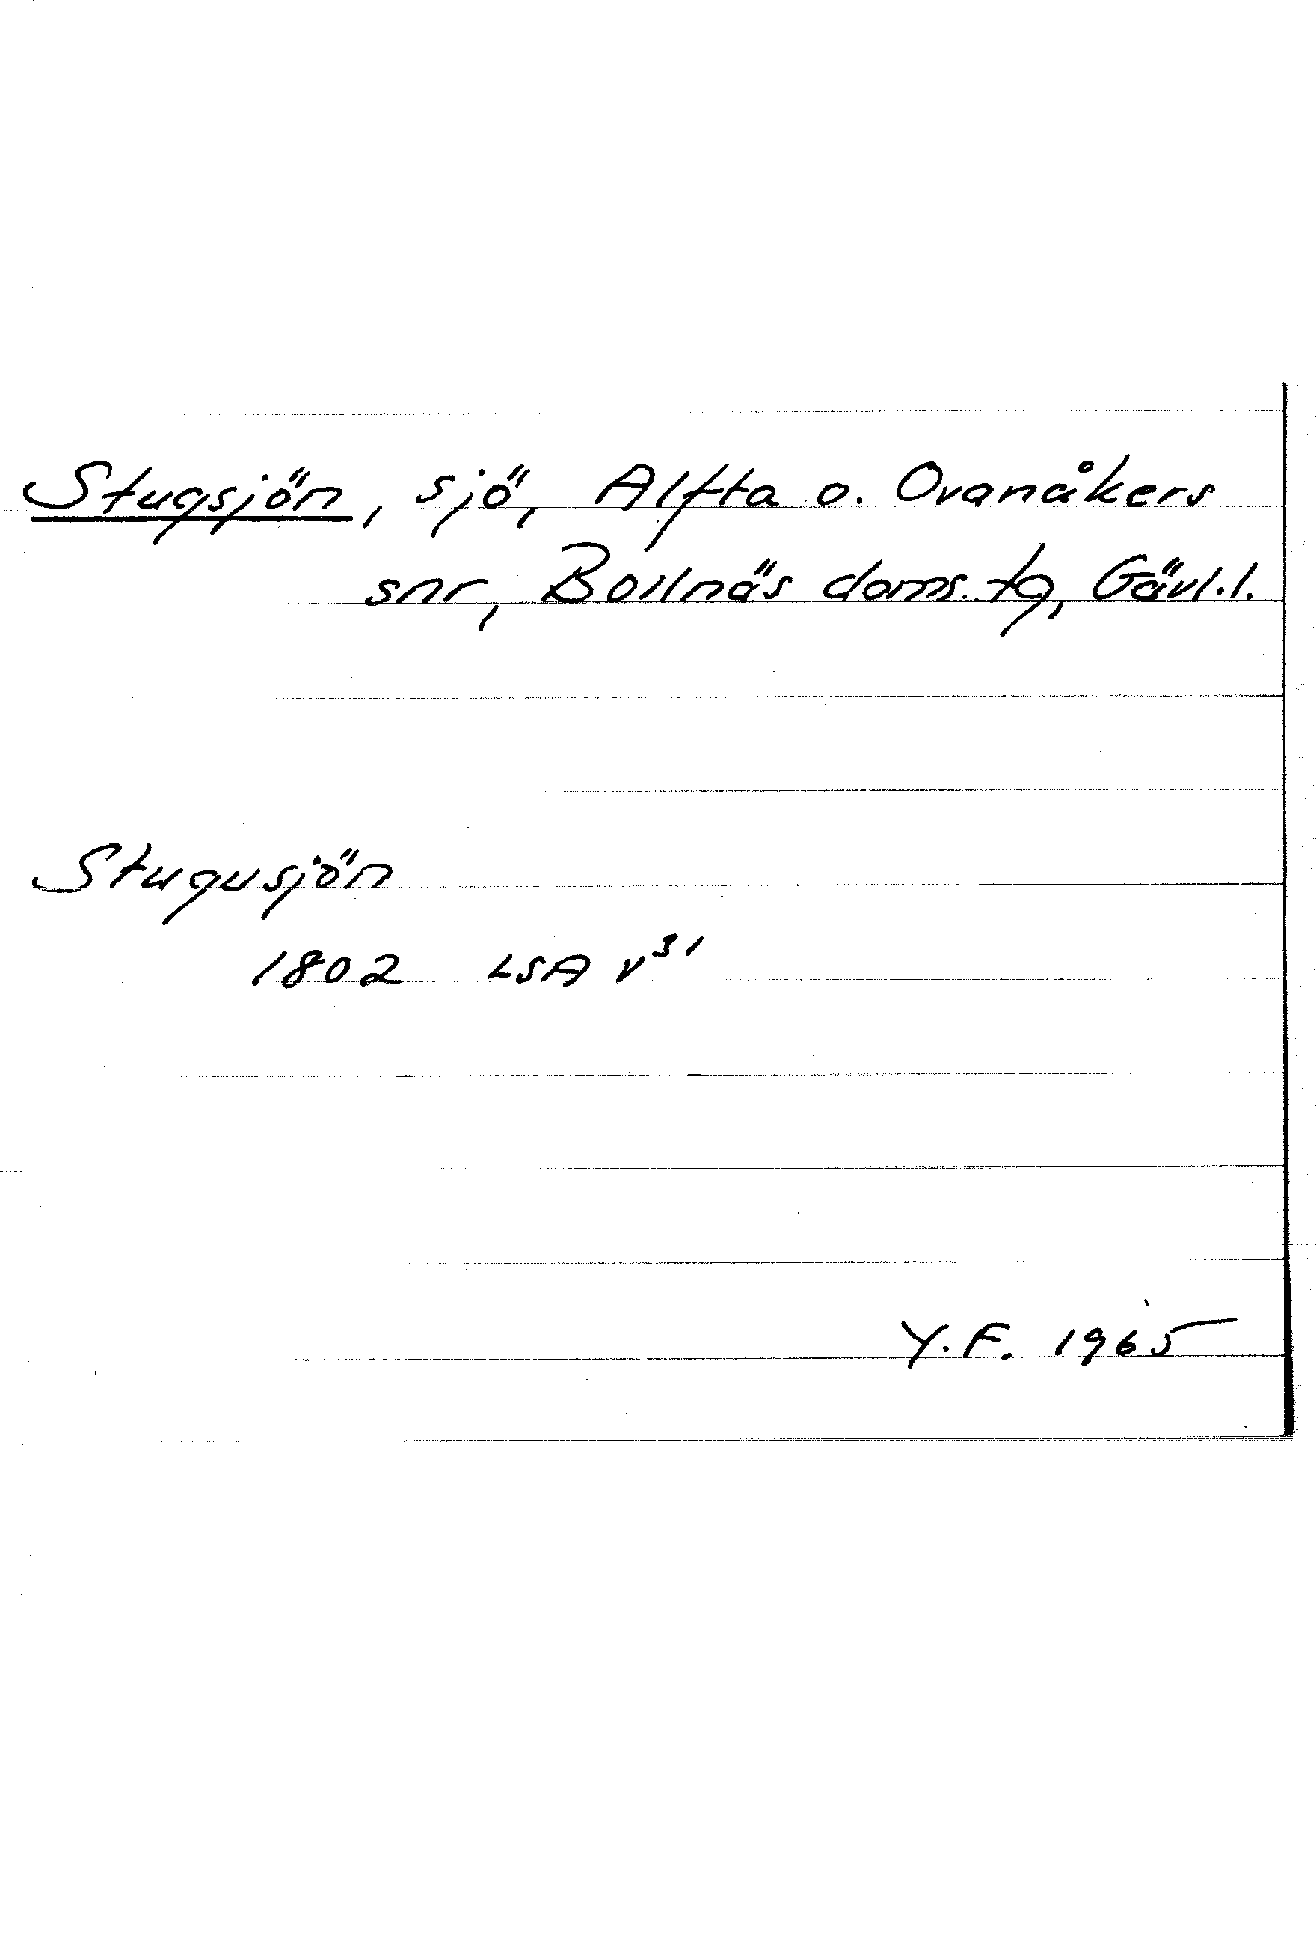 Stugsjön, sjö, Alfta o. Ovanåkers
snr, Bollnäs doms. tg, Gävl. l.
Stugusjön
1802 LSA v³¹
Y.F. 1965